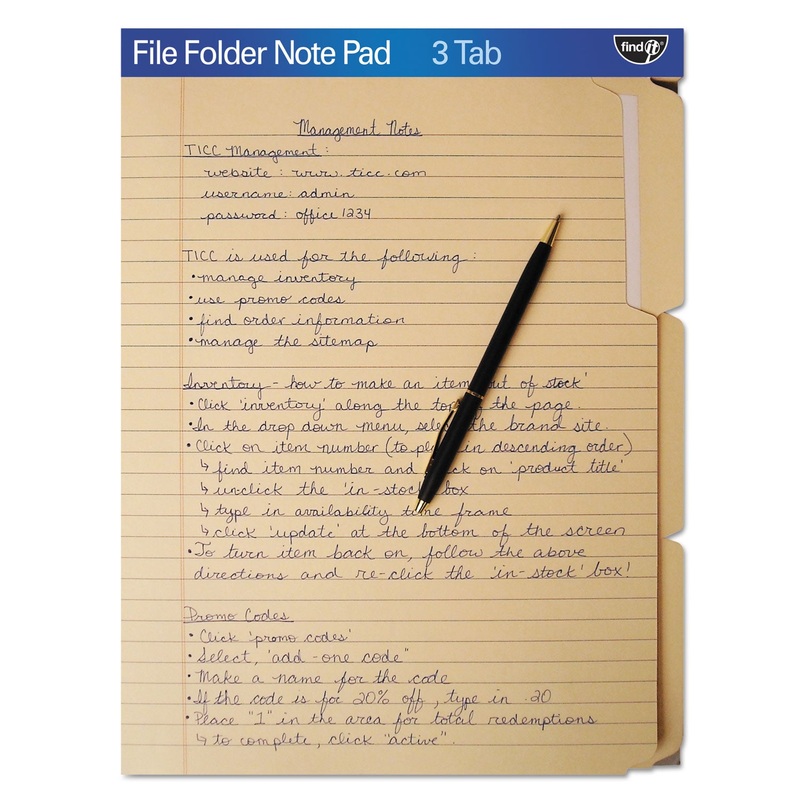 File Folder Note Pad 3 Tab
find it
Management Notes
TICC Management:
website: www.ticc.com
username: admin
password: office 1234
TICC is used for the following:
• manage inventory
• use promo codes
• find order information
• manage the sitemap
Inventory - how to make an item out of stock'
• Click 'inventory' along the top the page.
• In the drop down menu, the brand site.
• Click on item number (to in descending order)
↳ find item number and on 'product title'
↳ unclick the 'in-stock box
↳ type in availability time frame
↳ click 'update' at the bottom of the screen
• To turn item back on, follow the above
directions and re-click the 'in-stock' box!
Promo Codes
• Click 'promo codes'
• Select, 'add-one code"
• Make a name for the code
• If the code is for 20% off, type in .20
• Place "1" in the area for total redemptions
↳ to complete, click "active".